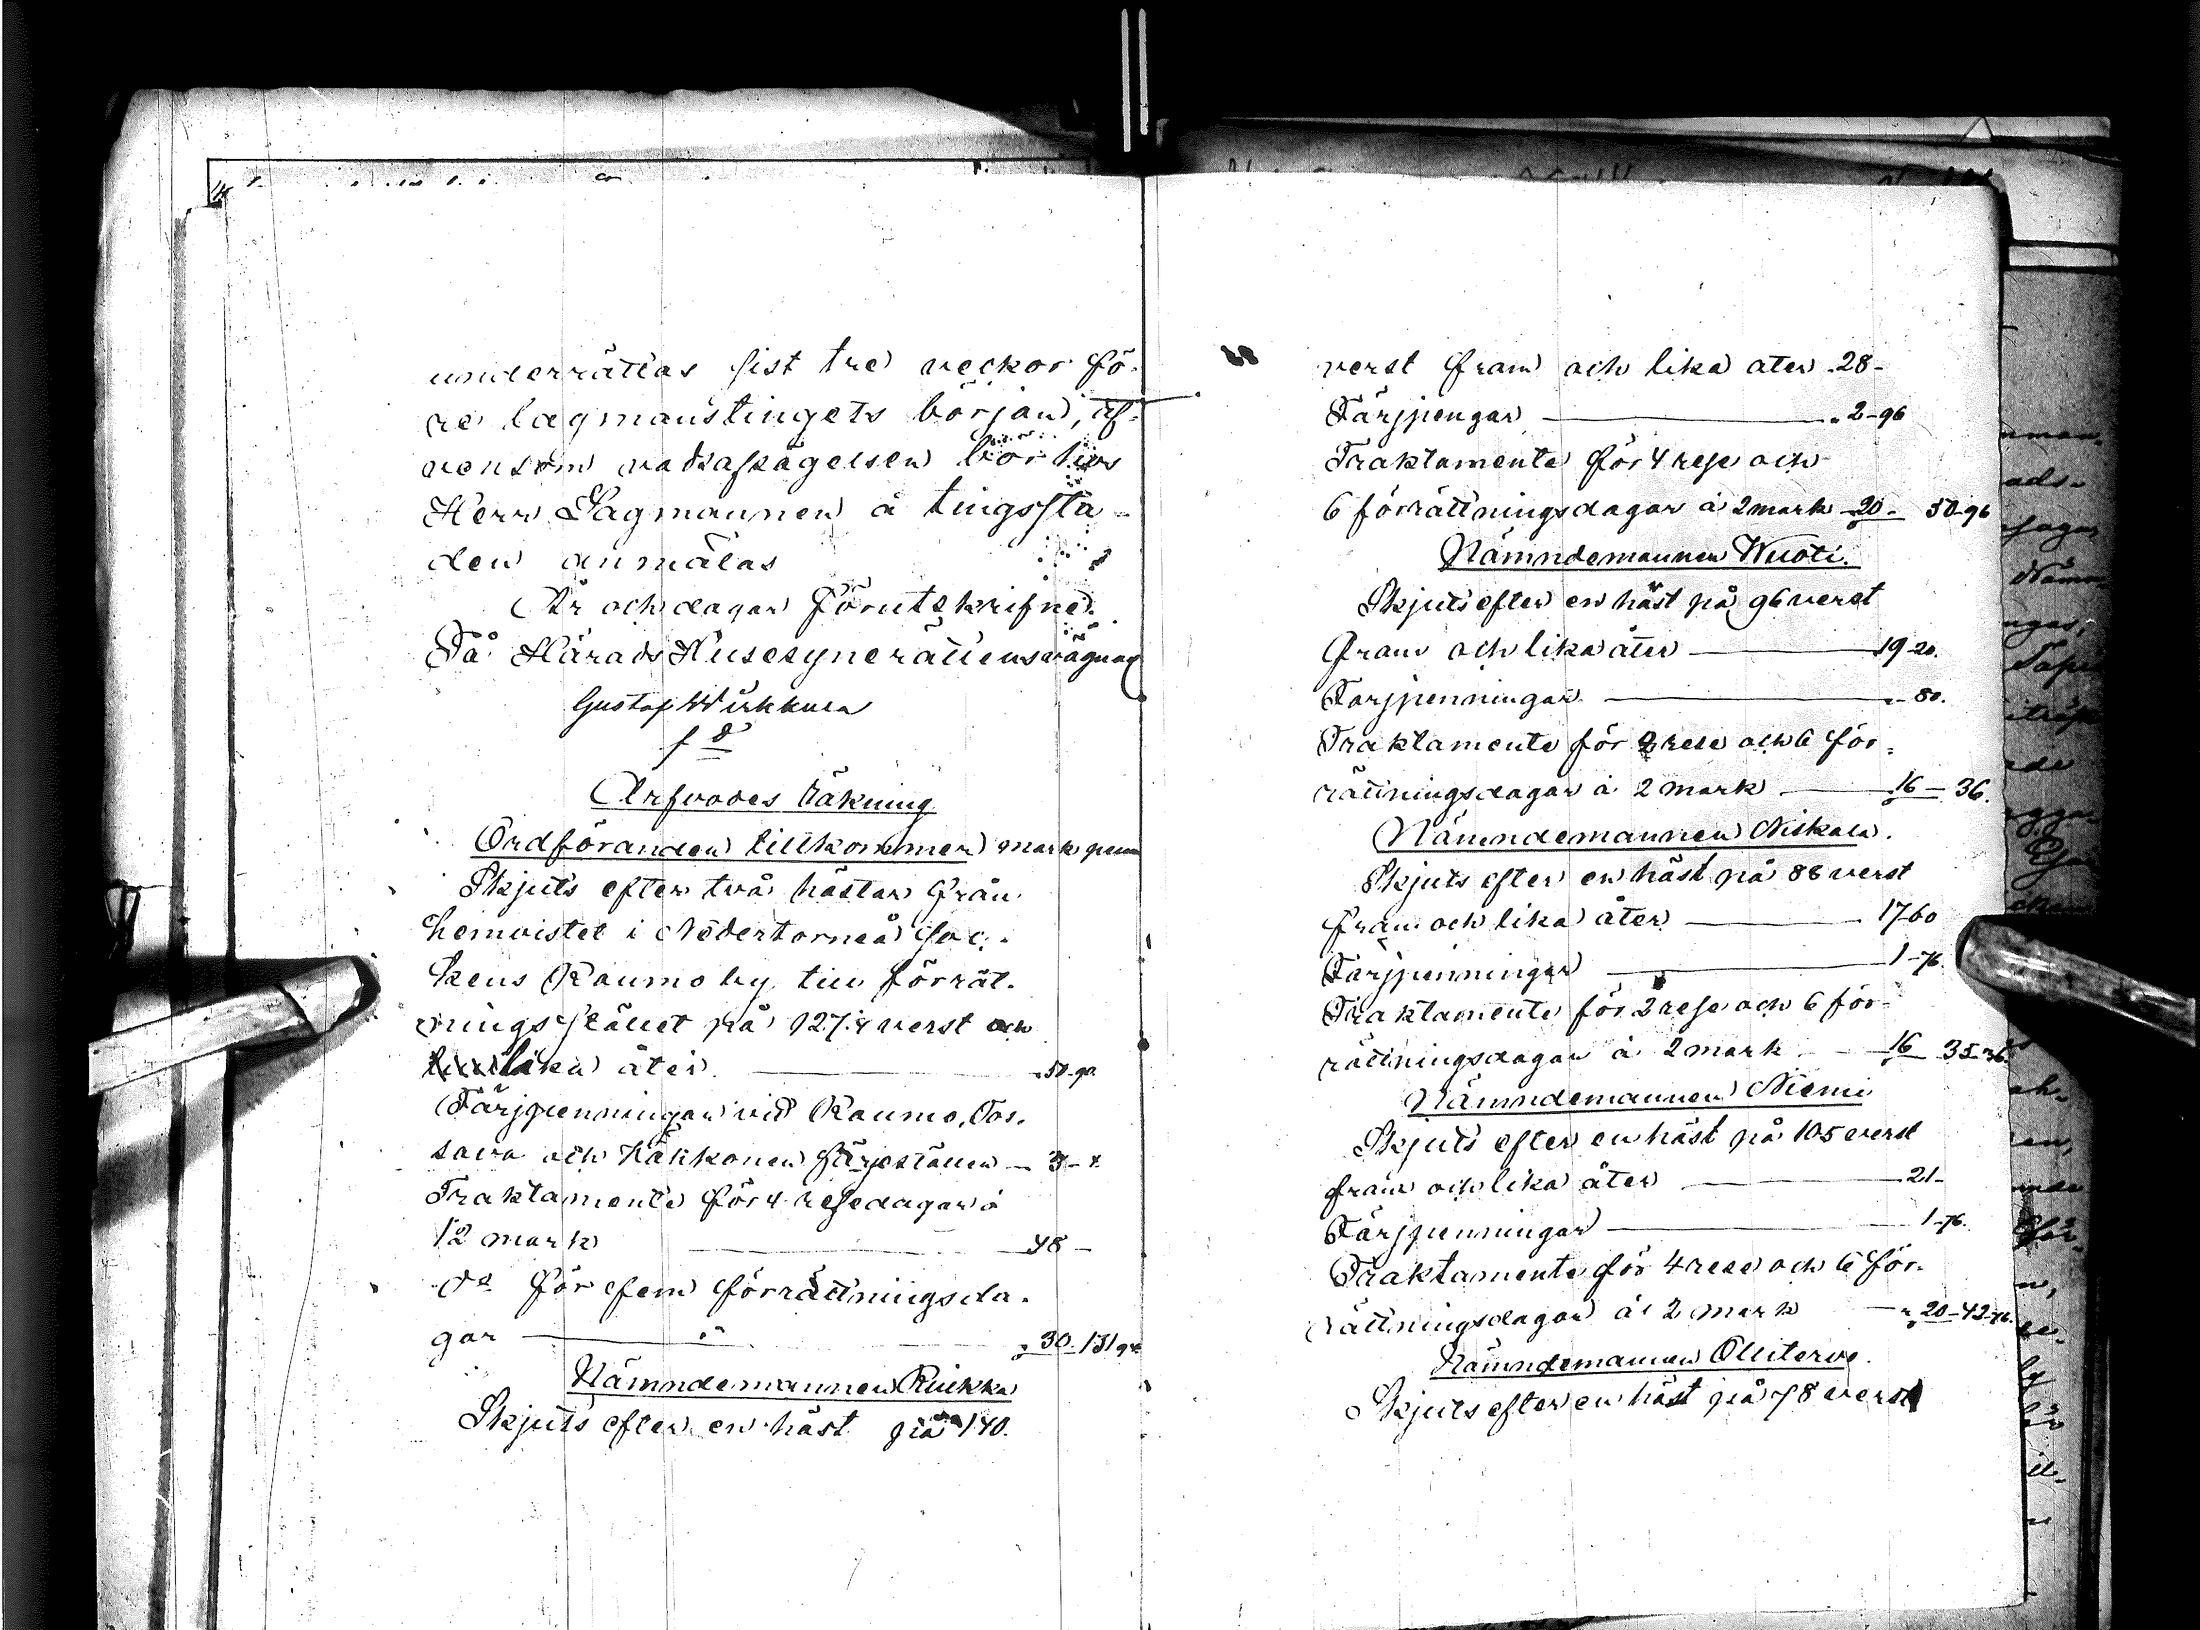 underrättas sist tre veckor fö-
re lagmanstingets början, äf-
vensom vadsafsägelsen bör hos
Herr Lagmannen å tingsstä-
den anmälas
År och dagar förutskrifne.
På Härads Husesynerättens vägnar
Gustaf Wirkkula
Arfvodes räkning
Ordföranden tillkommer mark penni
Skjuts efter två hästar från
hemvistet i Nedertorneå soc-
kens Raumo by till förrät-
ningsstället på 127.4 verst och
lika åter. 50-90
Färjpenningar vid Raumo,
och Kakkonen färjeställen - 3-
Traktamente för 4 resedagar à
12 mark 48 -
do för fem förrättningsda-
gar " 30. 131
Nämndemannen Ruikka
Skjuts efter en häst på 140.
verst fram och lika åter . 28-
Färjpengar . 2-96
Traktamente för 4 rese och
6 förrättningsdagar à 2 mark 20- 50-96
Nämndemannen Wuoti.
Skjuts efter en häst på 96 verst
fram och lika åter 19-20.
Färjpenningar - 80.
Traktamente för 2 rese och 6 för-
rättningsdagar à 2 mark 16 - 36.
Nämndemannen Niskala.
Skjuts efter en häst på 88 verst
fram och lika åter 17 60
Färjpenningar 1-76
Traktamente för 2 rese och 6 för-
rättningsdagar à 2 mark 16 35-36
Nämndemannen Niemi
Skjuts efter en häst på 105 verst
fram och lika åter 21-
Färjpenningar 1-76.
Traktamente för 4 rese och 6 för-
rättningsdagar à 2 mark 20-42-76.
Nämndemannen Ollitervo.
Skjuts efter en häst på 78 verst